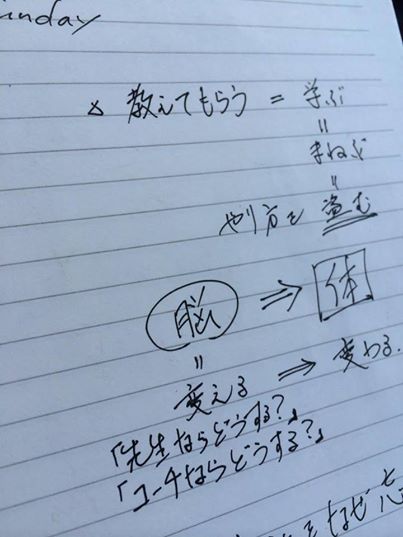 unday
× 教えてもらう = 学ぶ
=
まねぶ
=
やり方を 盗む
脳 ⇒ 体
=
変える ⇒ 変わる.
「先生ならどうする?」
「コーチならどうする?」
なぜ